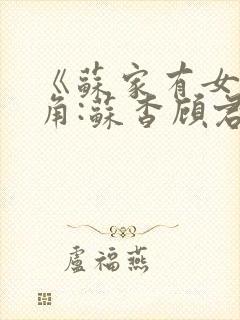 《蘇家有女
角:蘇香顧君
盧福燕